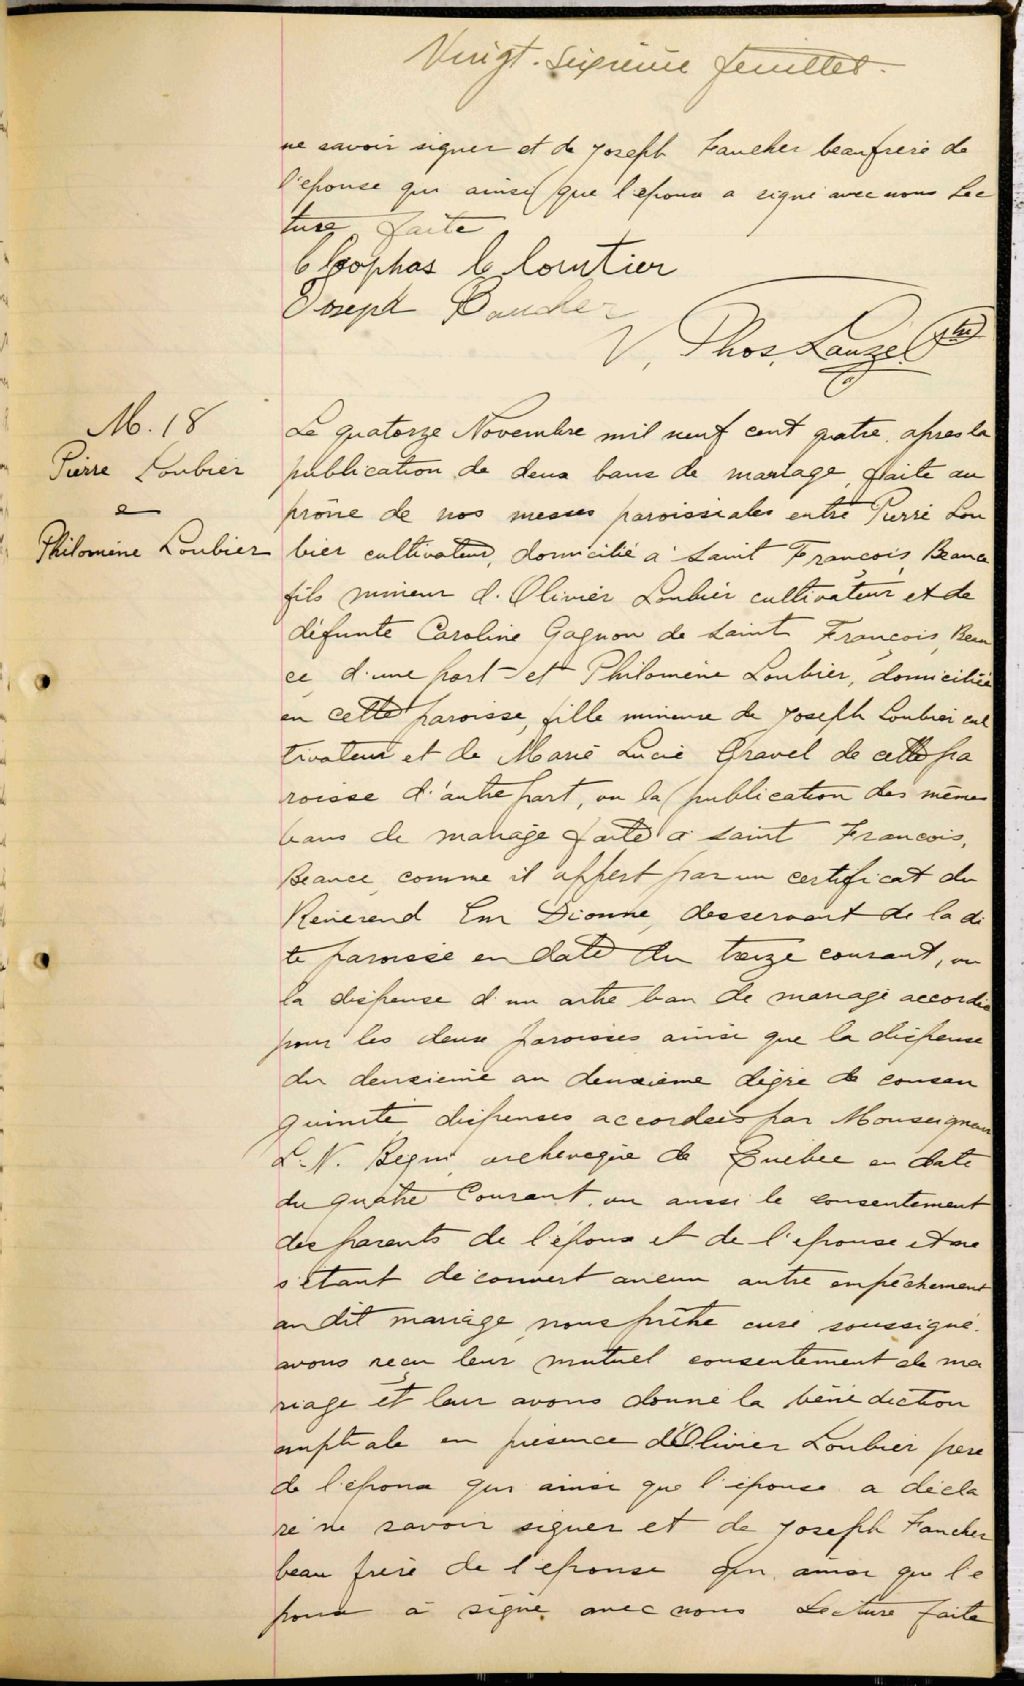 Vingt-sixième feuillet.
ne savoir signer et de Joseph Faucher beaufrère de
l'épouse qui ainsi que l'époux a signé avec nous Lec
ture faite
Cléophas Cloutier
Joseph Faucher
V. Phos. Lauzé Ptre
M. 18
Pierre Loubier
&
Philomène Loubier
Le quatorze Novembre mil neuf cent quatre, après la
publication de deux bans de mariage, faite au
prône de nos messes paroissiales entre Pierre Lou
bier cultivateur, domicilié à Saint François, Beauce
fils mineur d'Olivier Loubier cultivateur et de
défunte Caroline Gagnon de Saint François, Beau
ce, d'une part et Philomène Loubier, domiciliée
en cette paroisse, fille mineure de Joseph Loubier cul
tivateur et de Marie Lucie Gravel de cette pa
roisse d'autre part, vu la publication des mêmes
bans de mariage faite à Saint François,
Beauce, comme il appert par un certificat du
Révérend Em Dionne, desservant de la di
te paroisse en date du treize courant, vu
la dispense d'un autre ban de mariage accordée
pour les deux paroisses ainsi que la dispense
du deuxième au deuxième dégré de consan
guinité, dispenses accordées par Monseigneur
L.-N. Bégin, archevêque de Québec en date
du quatre Courant, vu aussi le consentement
des parents de l'époux et de l'épouse et ne
s'étant découvert aucun autre empêchement
au dit mariage, nous prêtre curé soussigné
avons reçu leur mutuel consentement de ma
riage et leur avons donné la bénédiction
nuptiale en présence d'Olivier Loubier père
de l'époux qui ainsi que l'épouse a décla
ré ne savoir signer et de Joseph Faucher
beau frère de l'épouse qui ainsi que l'é
poux a signé avec nous Lecture faite